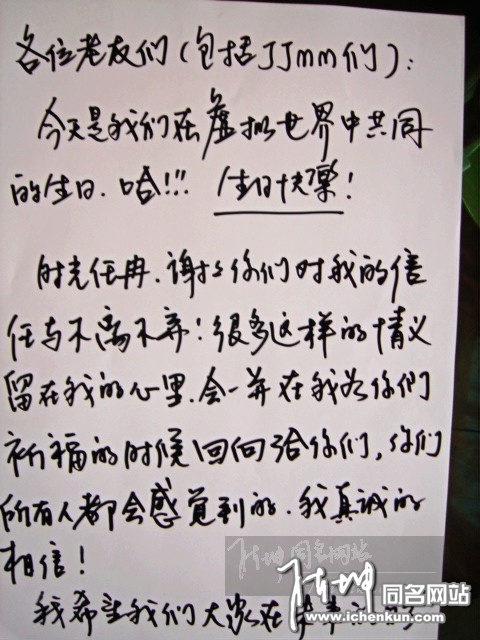 各位老友们(包括JJmm们):
今天是我们在虚拟世界中共同
的生日.哈!!! 生日快乐!
时光任冉.谢谢你们对我的信
任与不离不弃!很多这样的情义
留在我的心里.会一并在我为你們
祈福的时候回向给你们,你们
所有人都会感觉到的.我真诚的
相信!
我希望我们大家在
陈坤同名网站
陈坤同名网站
www.ichenkun.com